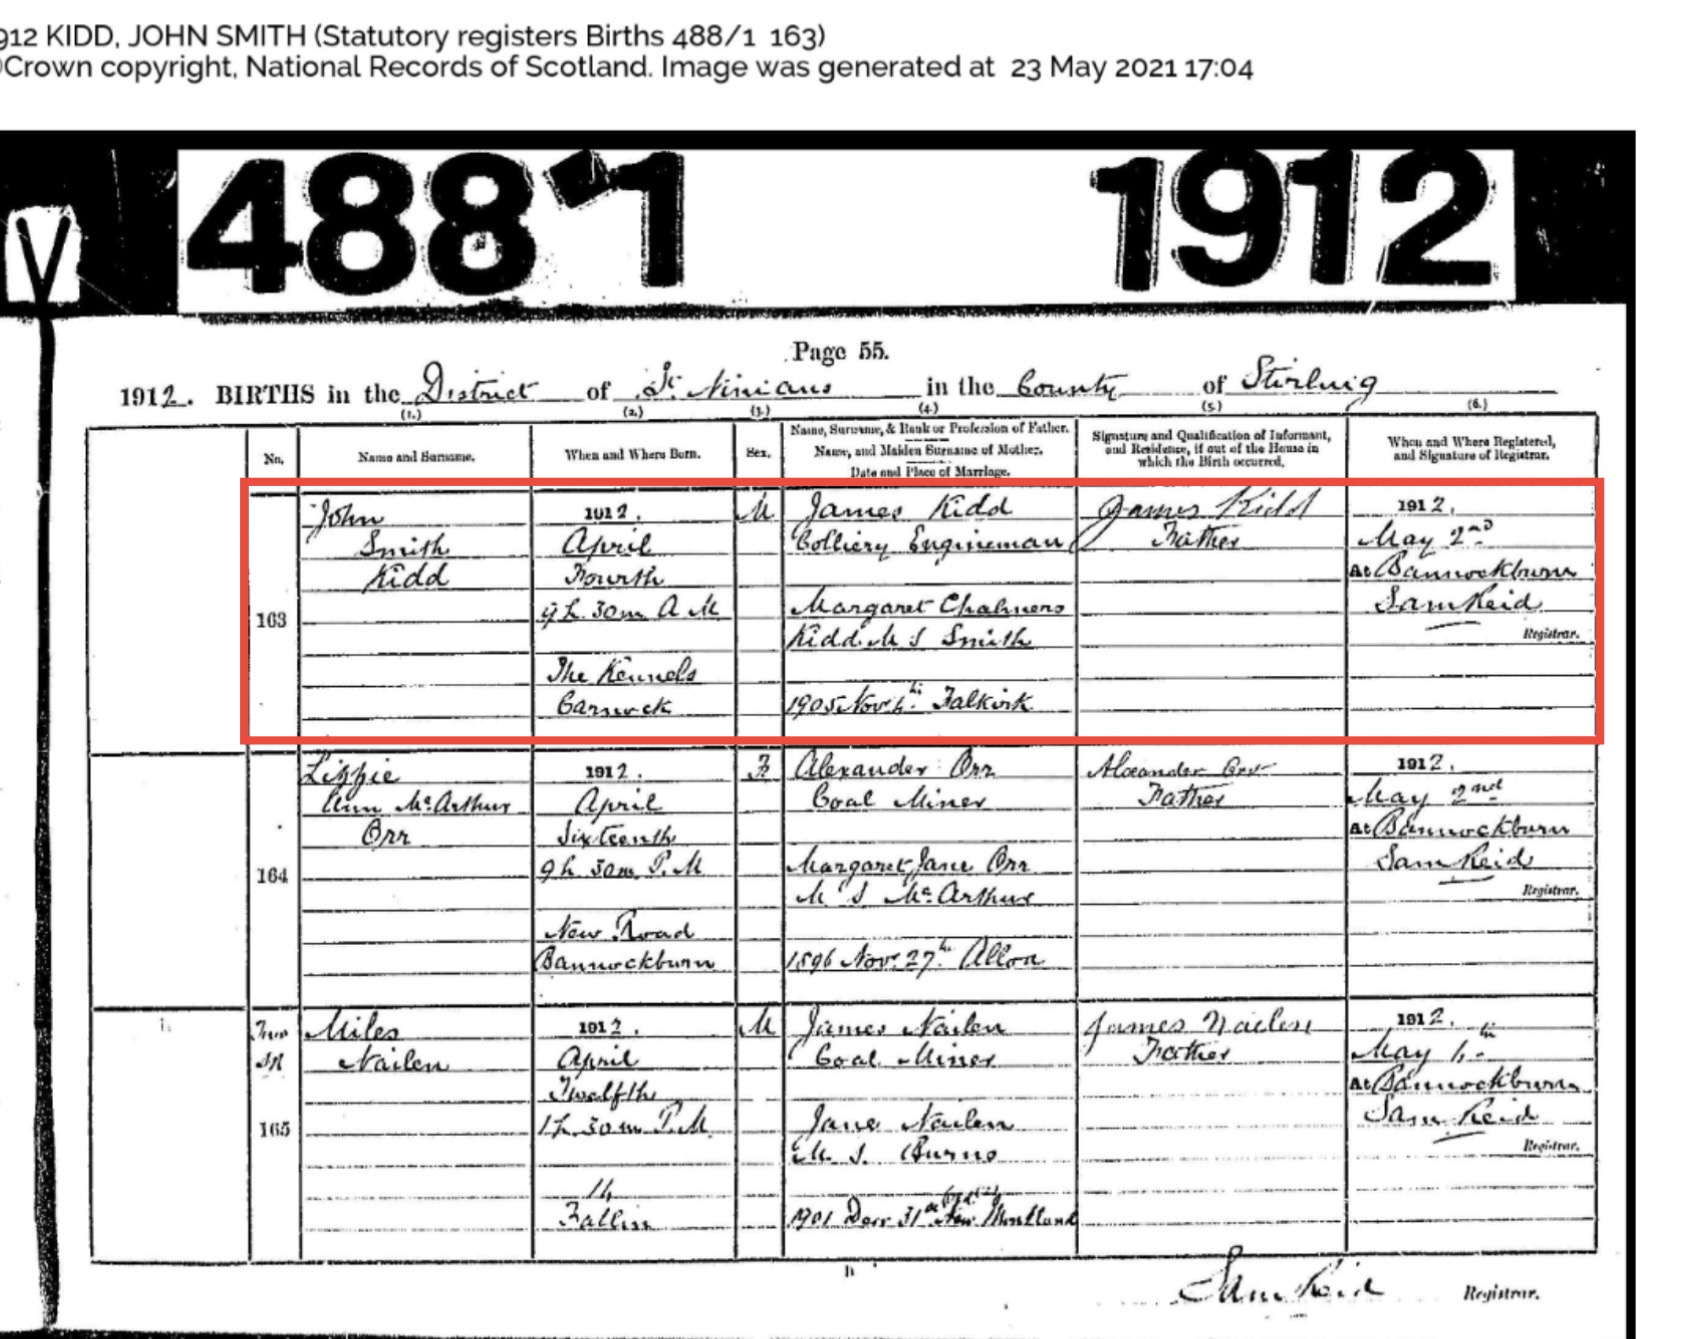 912 KIDD, JOHN SMITH (Statutory registers Births 488/1 163)
Crown copyright, National Records of Scotland. Image was generated at 23 May 2021 17:04
488/1 1912
V
Page 55.
1912. BIRTHS in the District of St. Ninians in the County of Stirling
(1.) (2.) (3.) (4.) (5.) (6.)
No.
Name and Surname.
When and Where Born.
Sex.
Name, Surname, & Rank or Profession of Father.
Name, and Maiden Surname of Mother.
Date and Place of Marriage.
Signature and Qualification of Informant,
and Residence, if out of the House in
which the Birth occurred.
When and Where Registered,
and Signature of Registrar.
163
John
Smith
Kidd
1912.
April
Fourth
9h. 30m A M
The Kennels
Carnock
M
James Kidd
Colliery Engineman
Margaret Chalmers
Kidd M S Smith
1905 Nov Falkirk
James Kidd
Father
1912.
May 2nd
At Bannockburn
Sam Reid
Registrar.
164
Lizzie
Ann McArthur
Orr
1912.
April
Sixteenth
9h 30m P. M
New Road
Bannockburn
F
Alexander Orr
Coal Miner
Margaret Jane Orr
M S McArthur
1896 Nov. 27th Alloa
Alexander Orr
Father
1912.
May 2nd
At Bannockburn
Sam Reid
Registrar.
165
Miles
Nailen
1912.
April
Twelfth
1h. 30m P.M.
Fallin
M
James Nailen
Coal Miner
Jane Nailen
M. S. Burns
1901 Decr 31st New
James Nailen
Father
1912.
May
At Bannockburn
Sam Reid
Registrar.
Sam Reid Registrar.